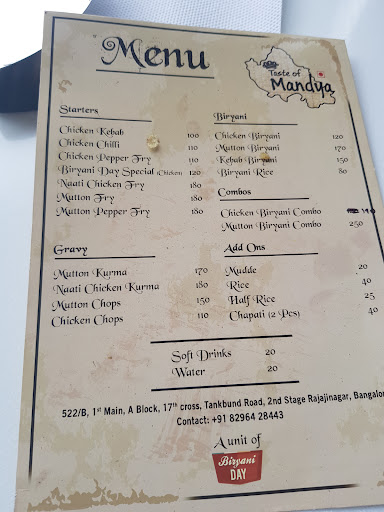 Menu
Taste of
Mandya
Starters
Chicken Kebab 100
Chicken Chilli 110
Chicken Pepper Fry 110
Biryani Day Special (Chicken) 120
Naati Chicken Fry 180
Mutton Fry 180
Mutton Pepper Fry 180
Biryani
Chicken Biryani 120
Mutton Biryani 170
Kebab Biryani 150
Biryani Rice 80
Combos
Chicken Biryani Combo 190
Mutton Biryani Combo 250
Gravy
Mutton Kurma 170
Naati Chicken Kurma 180
Mutton Chops 150
Chicken Chops 110
Add Ons
Mudde 20
Rice 40
Half Rice 25
Chapati (2 Pcs) 40
Soft Drinks 20
Water 20
522/B, 1st Main, A Block, 17th cross, Tankbund Road, 2nd Stage Rajajinagar, Bangalo
Contact: +91 82964 28443
A unit of
Biryani
DAY